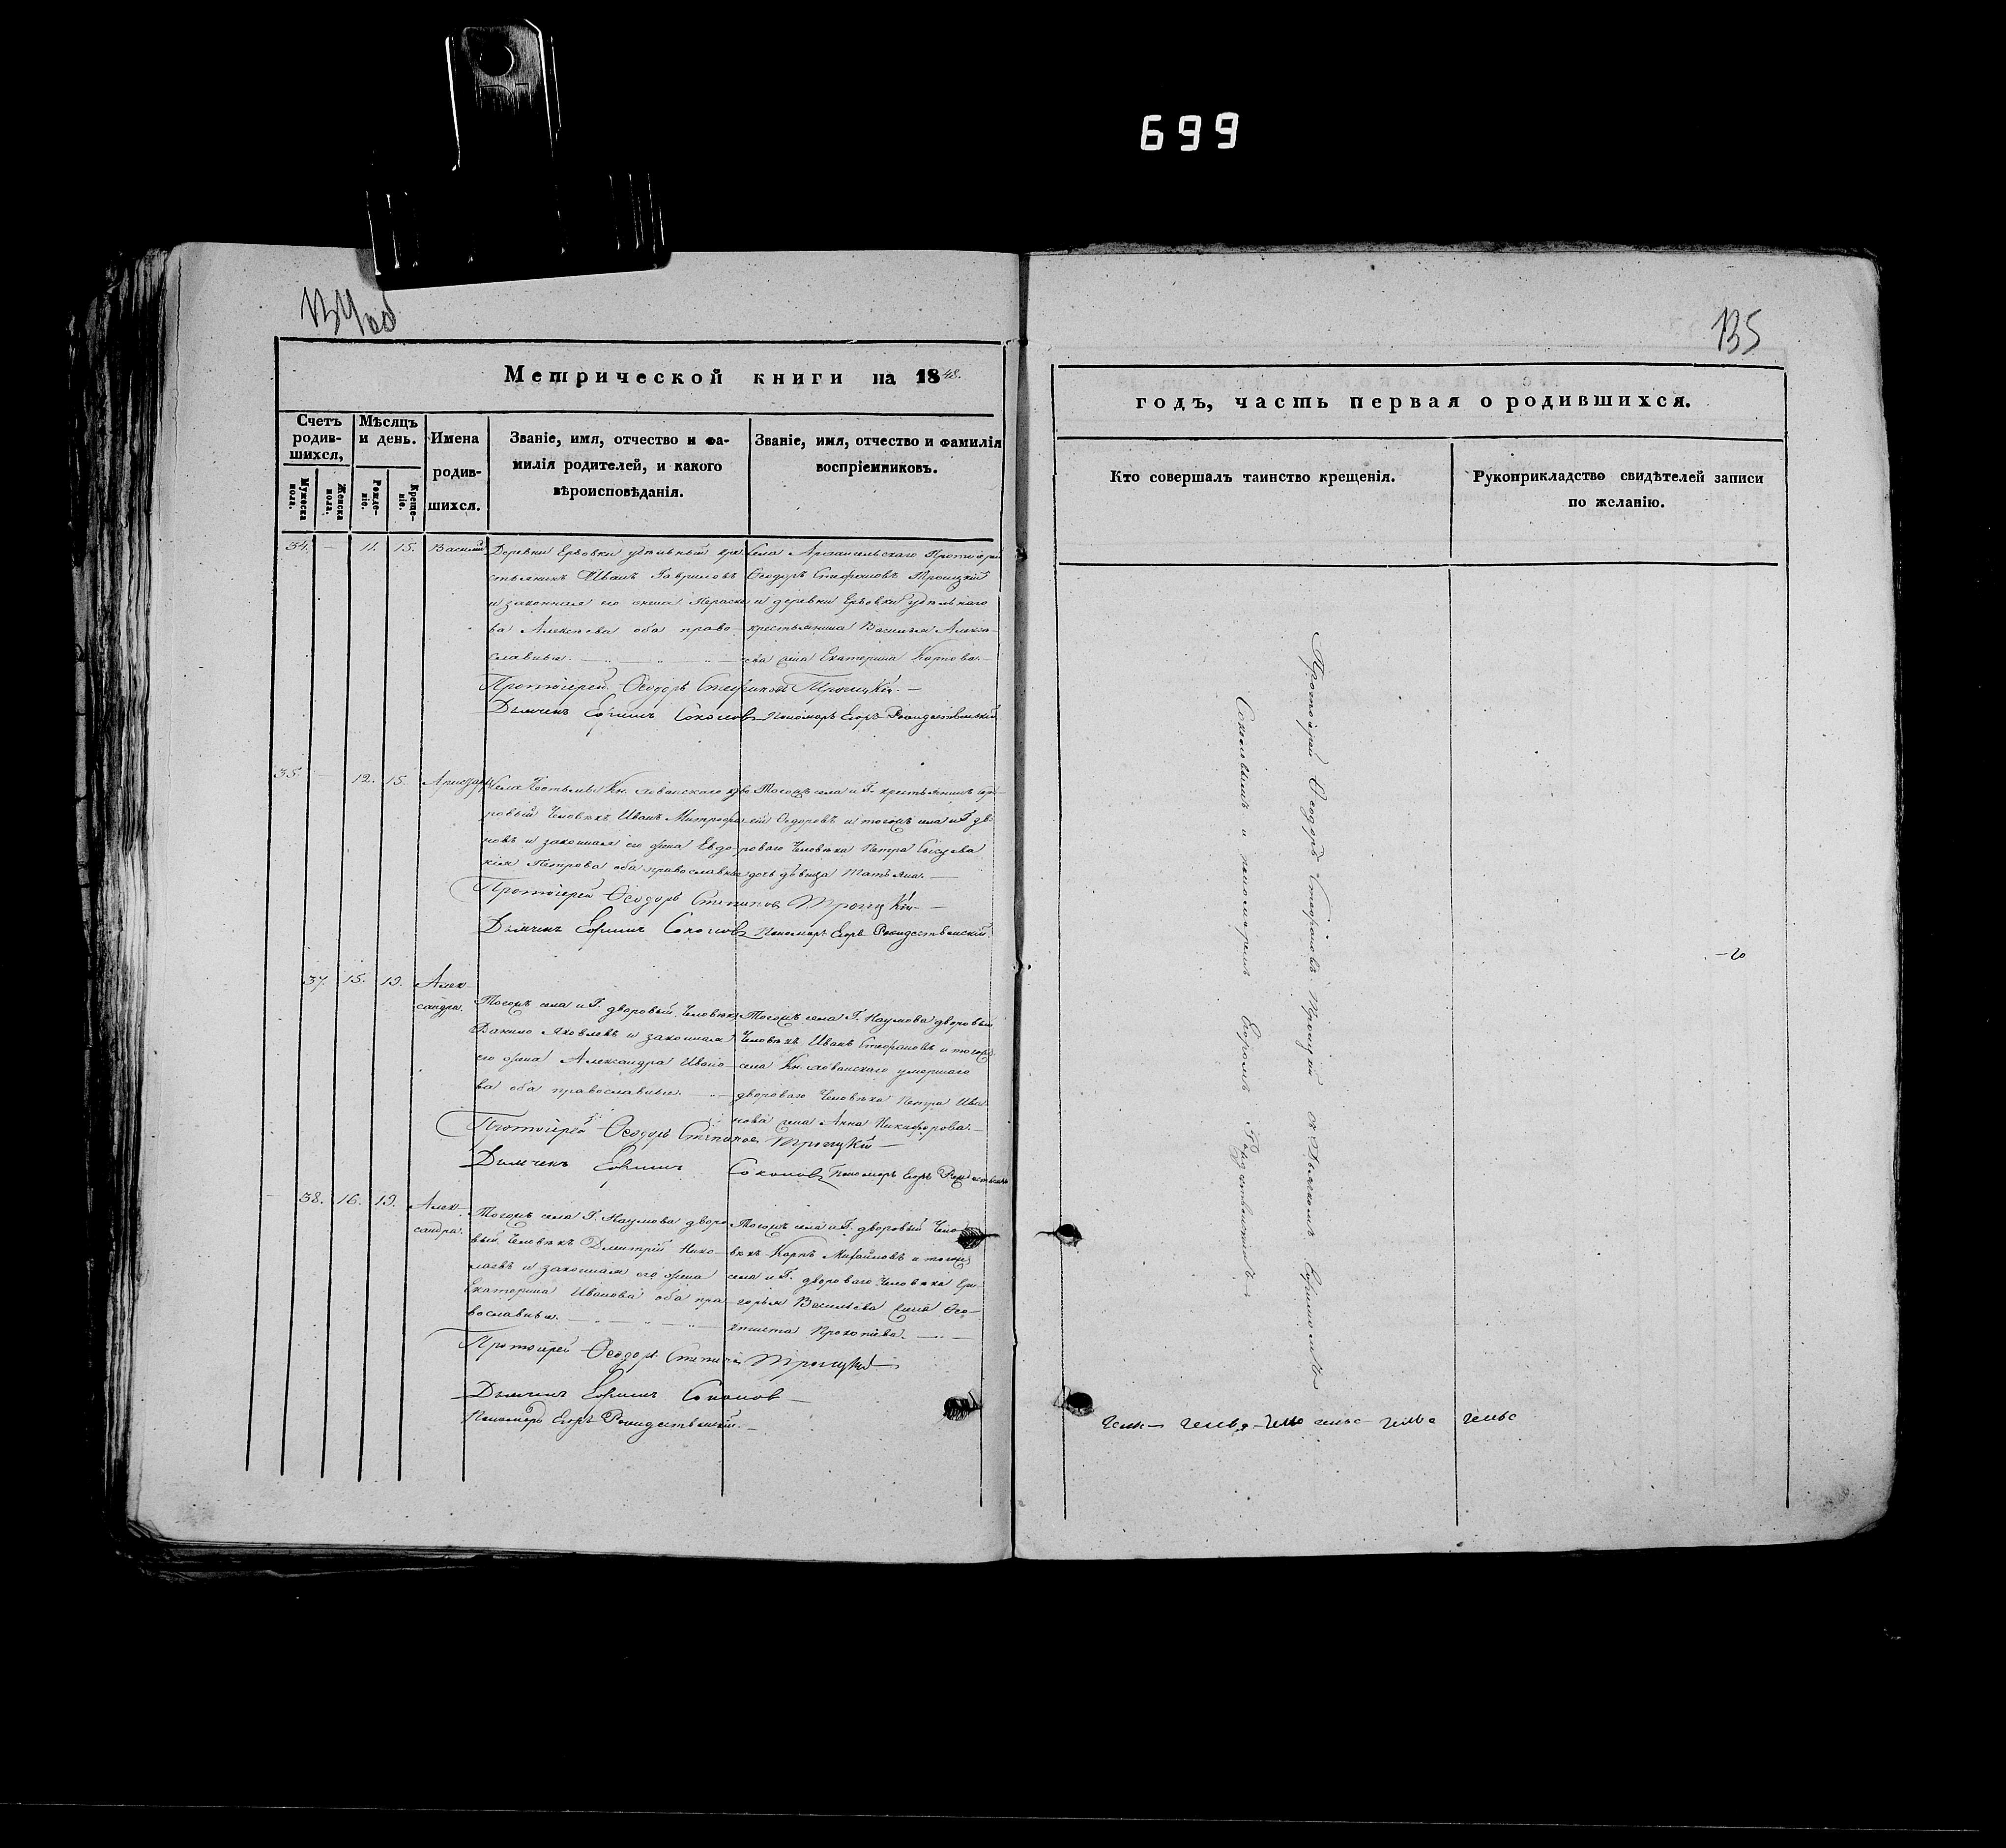 699
134об
135
Метрической книги на 1848.
годъ, часть первая о родившихся.
Счетъ родив-
шихся,
Мужеска пола.
Женска пола.
Мѣсяцъ и день.
Рожде-
ніе.
Креще-
ніе.
Имена
родив-
шихся.
Званіе, имя, отчество и фа-
милія родителей, и какого
вѣроисповѣданія.
Званіе, имя, отчество и фамилія
воспріемниковъ.
Кто совершалъ таинство крещенія.
Рукоприкладство свидѣтелей записи
по желанію.
34. — 11. 15. Василій
Деревни Еровки удѣльный кре
стьянинъ Иванъ Гавриловъ
и законная его жена Параске
ва Алексѣева оба право-
славные.
Села Архангельскаго Протоіерей
Ѳеодоръ Стефановъ Троицкій
и деревни Еровки удѣльнаго
крестьянина Василья Алексѣ-
ева жена Екатерина Карпова.
Протоіерей Ѳеодоръ Стефановъ Троицкій.
Дьячекъ Ефимъ Соколовъ Пономарь Егоръ Рождественскій
35. — 12. 15.
Села Кн. Хованскаго дво
ровый Человѣкъ Иванъ Митрофа
новъ и законная его жена Евдо
кія Петрова оба православные
Тогожъ села и Г. крестьянинъ
Ѳедоровъ и тогожъ села и Г. дво
роваго Человѣка Петра
дочь дѣвица Татьяна.
Протоіерей Ѳеодоръ Степановъ Троицкій
Дьячекъ Ефимъ Соколовъ Пономарь Егоръ Рождественскій.
37. 15. 19. Алек-
сандра.
Тогожъ села и Г. дворовый Человѣкъ
Данило Яковлевъ и законная
его жена Александра Ивано-
ва оба православные.
Тогожъ села Г. Наумова дворовый
Человѣкъ Иванъ Стефановъ и тогожъ
села Кн. Хованскаго умершаго
двороваго Человѣка Петра Ива-
нова жена Анна Никифорова.
Протоіерей Ѳеодоръ Степановъ Троицкій
Дьячекъ Ефимъ Соколовъ Пономарь Егоръ Рождественскій
38. 16. 19. Алек-
сандра.
Тогожъ села Г. Наумова дворо
вый Человѣкъ Дмитрій Нико-
лаевъ и законная его жена
Екатерина Иванова оба пра
вославные.
Тогожъ села и Г. дворовый Чело-
вѣкъ Карпъ Михайловъ и тогожъ
села и Г. двороваго Человѣка Гри
горья Васильева жена Ѳео-
ктиста Прокопіева.
Протоіерей Ѳеодоръ Степановъ Троицкій
Дьячекъ Ефимъ Соколовъ
Пономарь Егоръ Рождественскій.
Протоіерей Ѳеодоръ Стефановъ Троицкій съ Дьячкомъ Ефимомъ
Соколовымъ и пономаремъ Егоромъ Рождественскимъ